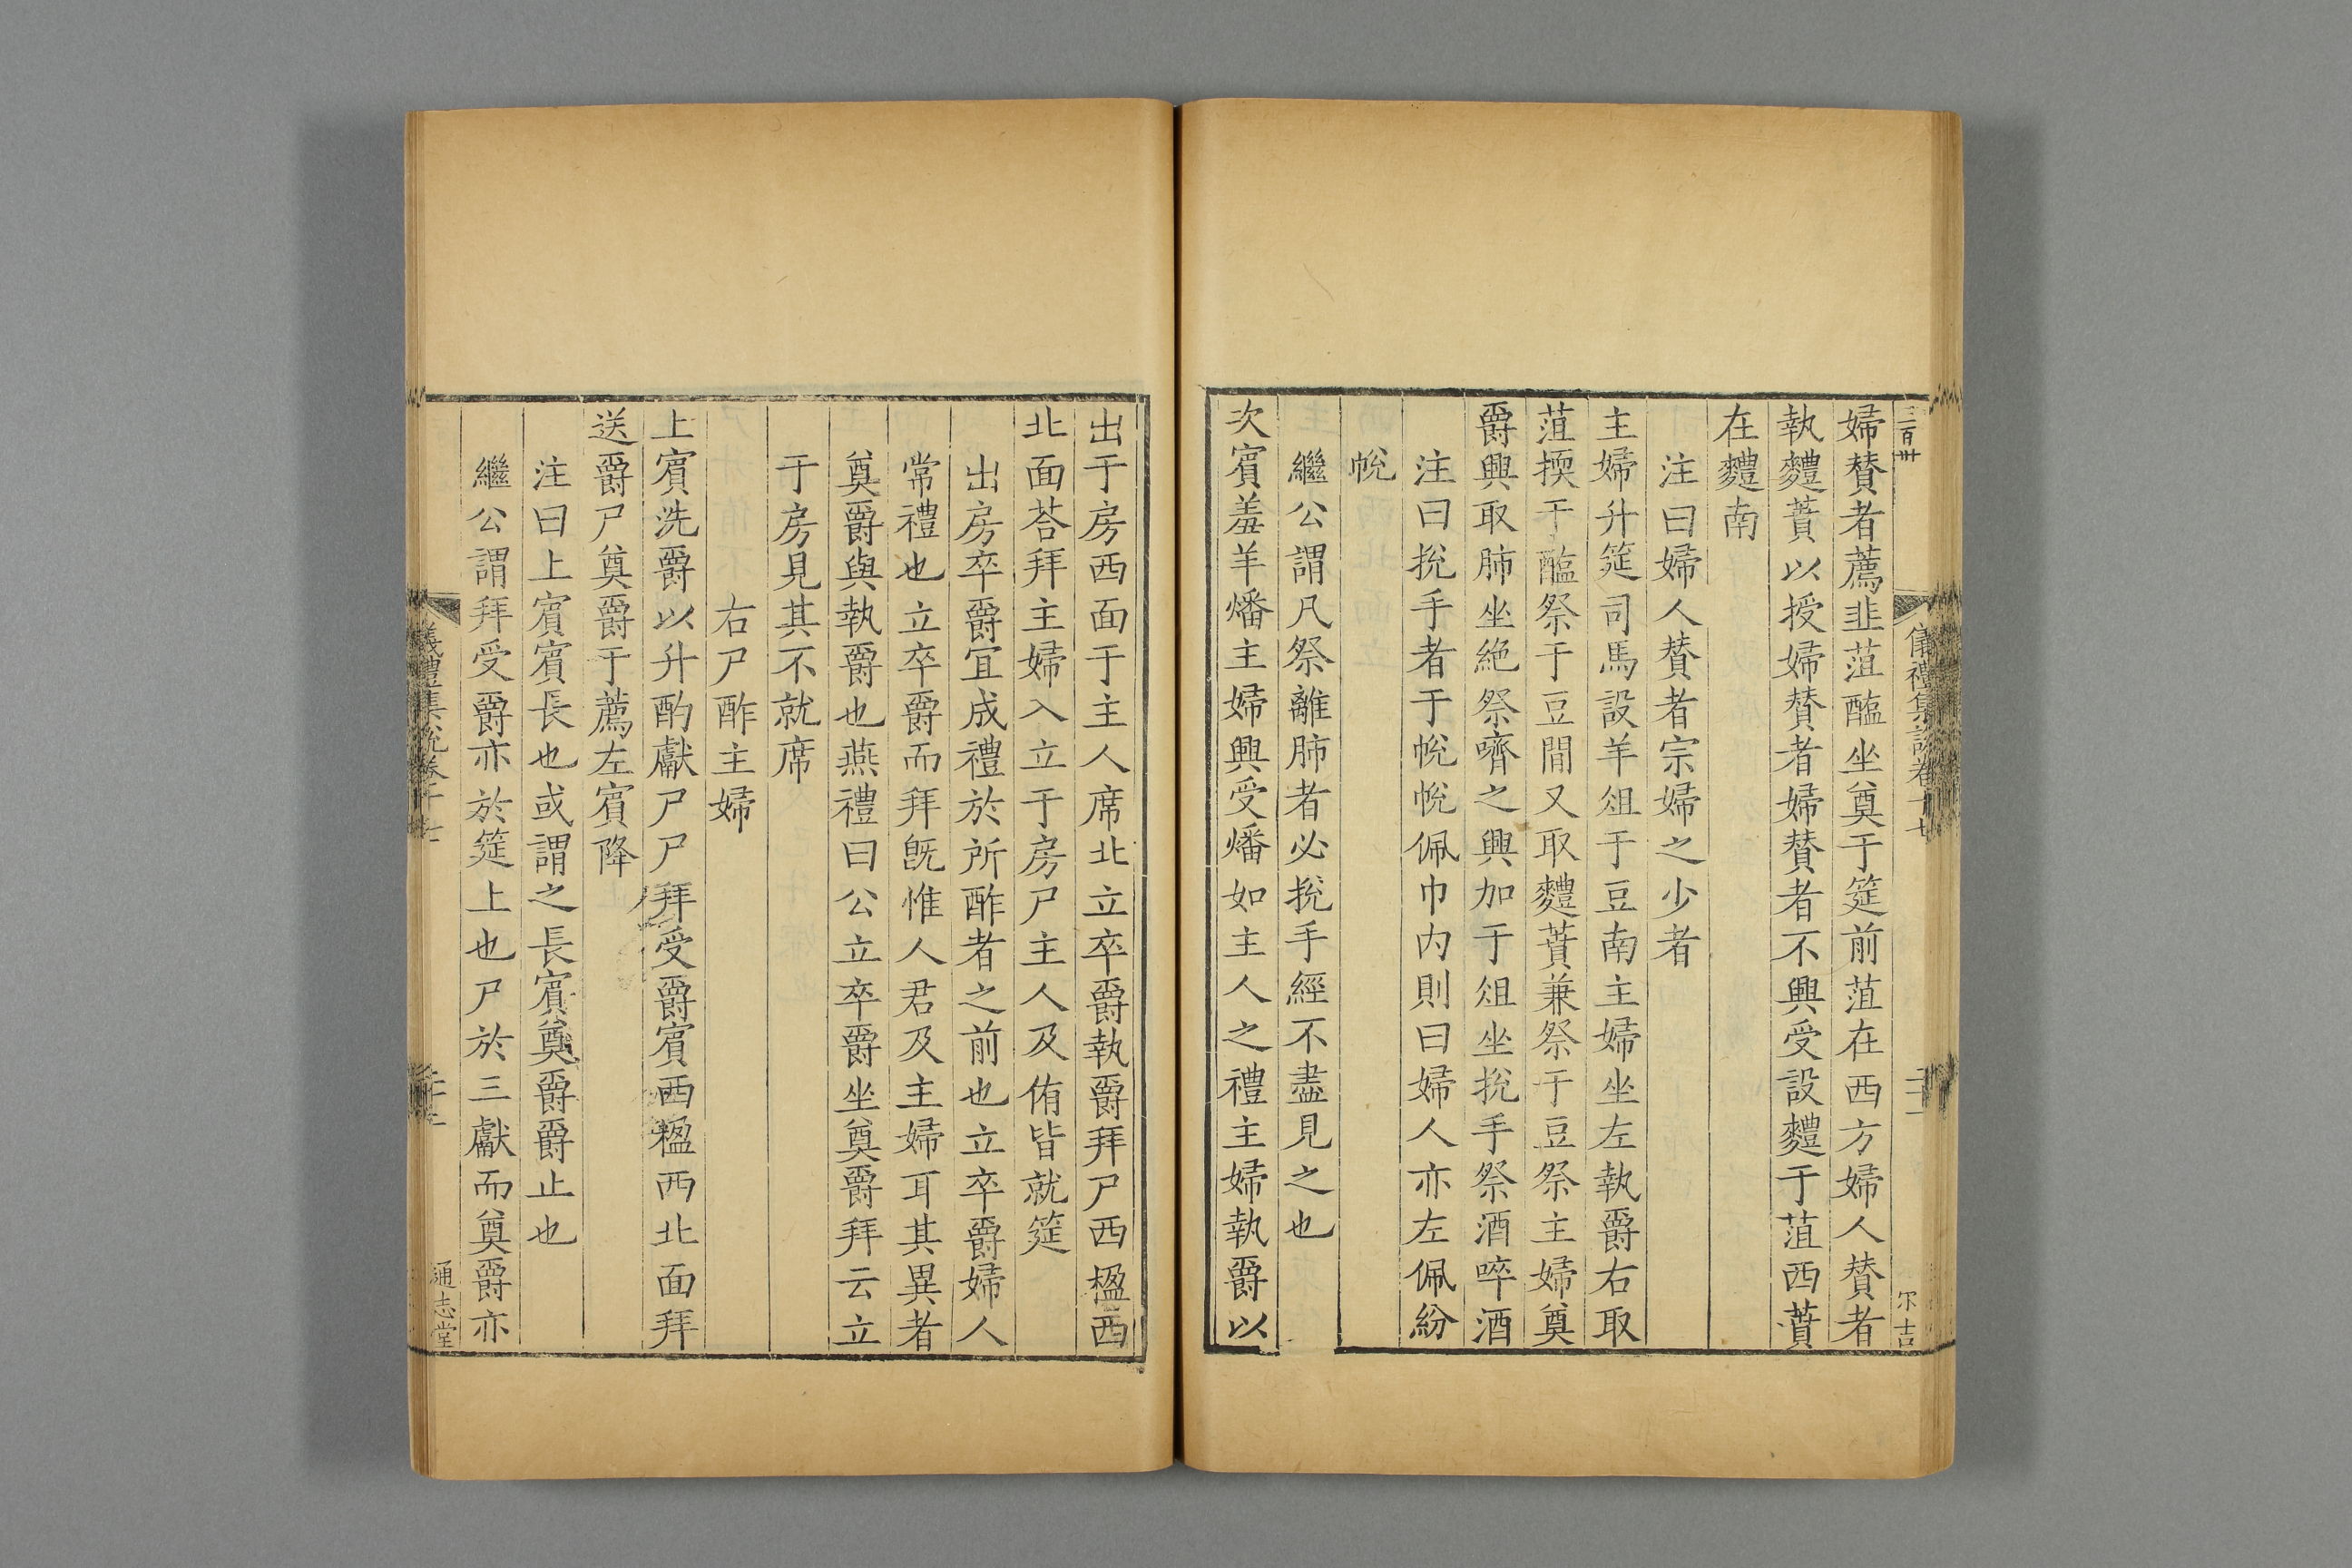 三百卅
儀禮集說卷十七
二十一
尔吉
婦賛者薦韭菹醢坐奠于筵前菹在西方婦人賛者
執麷蕡以授婦賛者婦賛者不興受設麷于菹西蕡
在麷南
注曰婦人賛者宗婦之少者
主婦升筵司馬設羊俎于豆南主婦坐左執爵右取
菹擩于醢祭于豆間又取麷蕡兼祭于豆祭主婦奠
爵興取肺坐絶祭嚌之興加于俎坐挩手祭酒啐酒
注曰挩手者于帨帨佩巾内則曰婦人亦左佩紛
帨
繼公謂凡祭離肺者必挩手經不盡見之也
次賔羞羊燔主婦興受燔如主人之禮主婦執爵以
出于房西面于主人席北立卒爵執爵拜尸西楹西
北面荅拜主婦入立于房尸主人及侑皆就筵
出房卒爵宜成禮於所酢者之前也立卒爵婦人
常禮也立卒爵而拜旣惟人君及主婦耳其異者
奠爵與執爵也燕禮曰公立卒爵坐奠爵拜云立
于房見其不就席
右尸酢主婦
上賔洗爵以升酌獻尸尸拜受爵賔西楹西北面拜
送爵尸奠爵于薦左賔降
注曰上賔賔長也或謂之長賔奠爵爵止也
繼公謂拜受爵亦於筵上也尸於三獻而奠爵亦
儀禮集說卷十七
通志堂